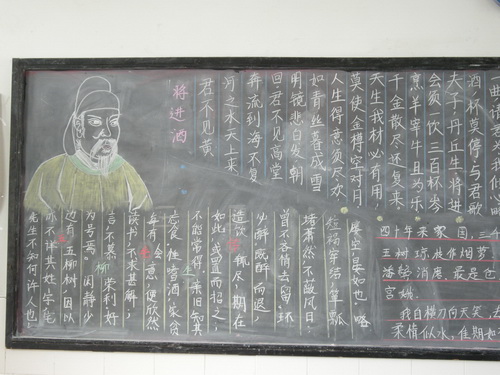 将进酒
君不见黄
河之水天上来
奔流到海不复
回君不见高堂
明镜悲白发朝
如青丝暮成雪
人生得意须尽欢
莫使金樽空对月
天生我材必有用,
千金散尽还复来
烹羊宰牛且为乐
会须一饮三百杯岑
夫子丹丘生将进
酒杯莫停与君歌
曲请为君倾
先生不知何许人也,
亦不详其姓字宅
边有五柳树因以
为号焉。闲静少
言,不慕荣利好
读书,不求甚解;
每有会意,便欣然
忘食。性嗜酒,家贫
不能常得。亲旧知其
如此,或置而招之;
造饮辄尽,期在
必醉既醉而退,
曾不吝情去留。环
堵萧然不蔽风日;
短褐穿结,箪瓢
屡空,晏如也。略
四十年来家国,三千
玉树琼枝作烟萝
潘鬓消磨,最是仓
宫娥。
我自横刀向天笑,去
柔情似水,佳期如